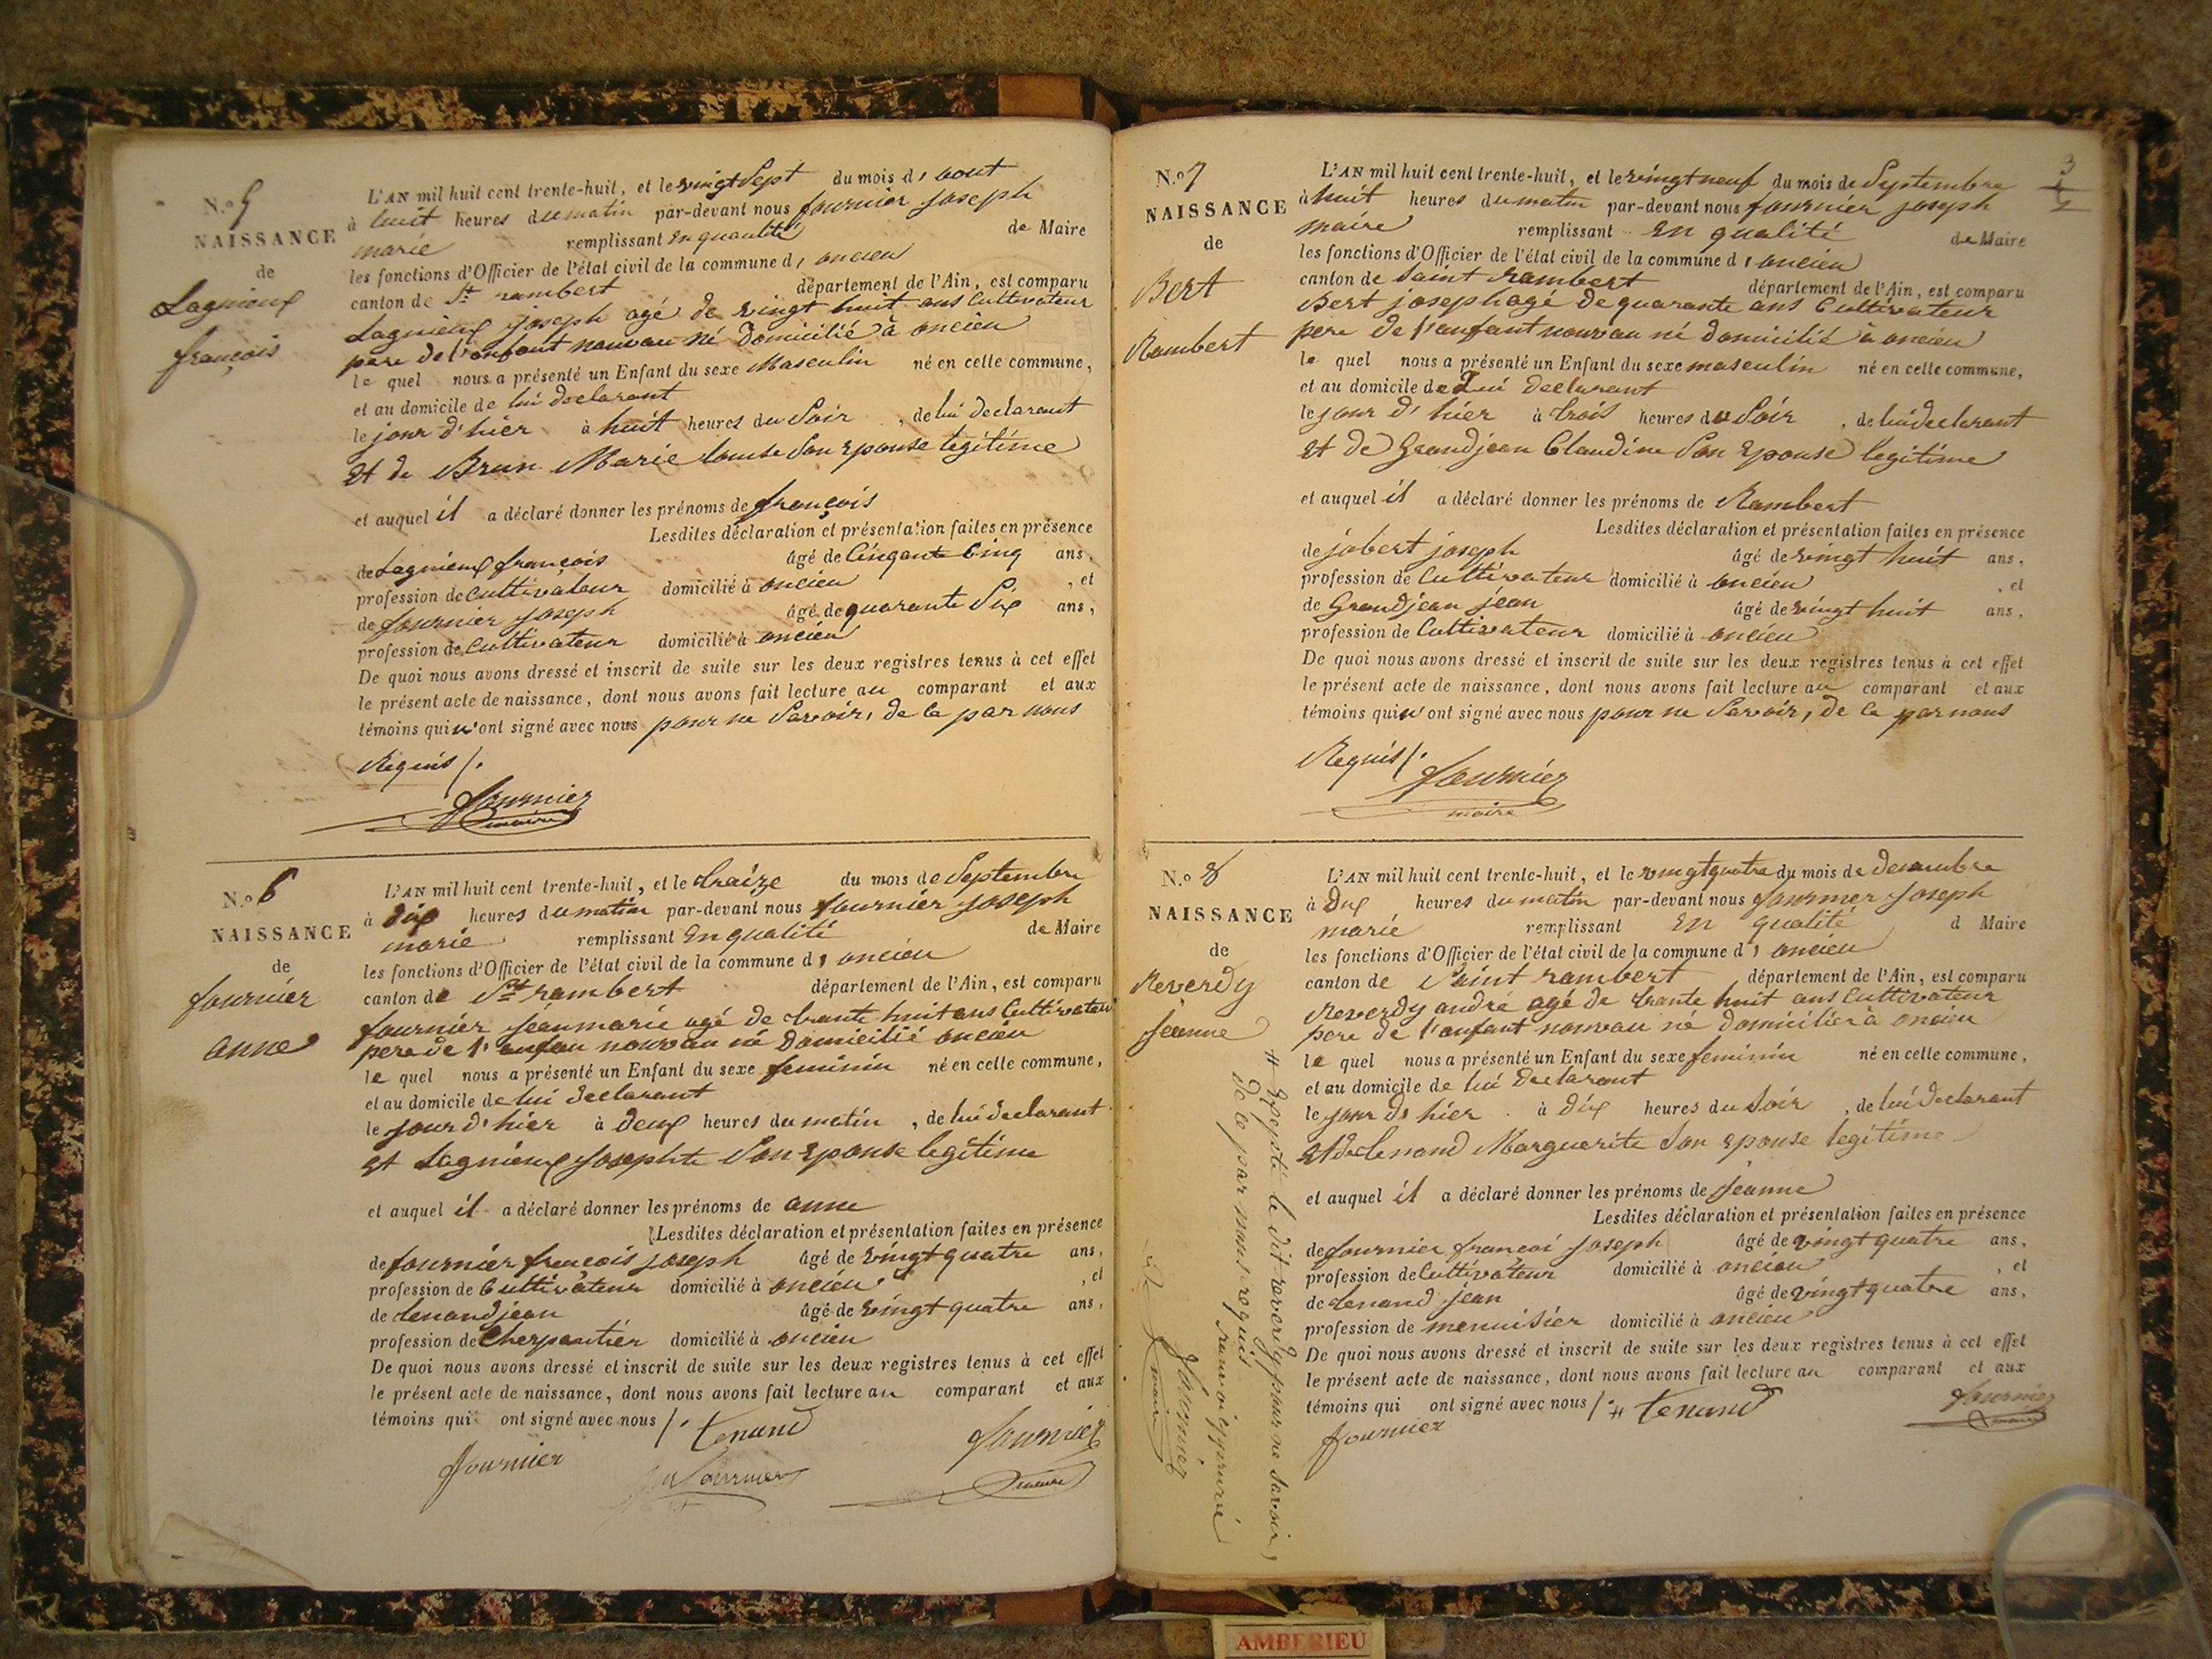 N.o 5
NAISSANCE
de
Lagnieux
françois
L'AN mil huit cent trente-huit, et le vingt Sept du mois d'aout
à huit heures du matin par-devant nous fournier joseph
marie remplissant En quaulité de Maire
les fonctions d'Officier de l'état civil de la commune d'oncieu
canton de St rambert département de l'Ain, est comparu
Lagnieux joseph agé de vingt huit ans Cultivateur
pere de l'enfant nouveau né Domicilié à oncieu
le quel nous a présenté un Enfant du sexe Masculin né en cette commune,
et au domicile de lui declarant
le jour d'hier à huit heures du Soir, de lui declarant
Et de Brun Marie louise Son Epouse legitime
et auquel il a déclaré donner les prénoms de françois
Lesdites déclaration et présentation faites en présence
de Lagnieux françois âgé de Cinqante Cinq ans,
profession de Cultivateur domicilié à oncieu, et
de fournier joseph âgé de quarante Six ans,
profession de Cultivateur domicilié à oncieu
De quoi nous avons dressé et inscrit de suite sur les deux registres tenus à cet effet
le présent acte de naissance, dont nous avons fait lecture au comparant et aux
témoins qui n'ont signé avec nous pour ne Savoir, de ce par nous
Requis /.
fournier
maire
N.o 6
NAISSANCE
de
fournier
anne
L'AN mil huit cent trente-huit, et le traize du mois de Septembre
à dix heures du matin par-devant nous fournier joseph
marie remplissant En qualité de Maire
les fonctions d'Officier de l'état civil de la commune d'oncieu
canton de St rambert département de l'Ain, est comparu
fournier jeanmarie agé de trante huit ans Cultivateur
pere de l'enfan nouvau né Domicilié oncieu
le quel nous a présenté un Enfant du sexe feminin né en cette commune,
et au domicile de lui declarant
le jour d'hier à deux heures du matin, de lui declarant
Et Lagnieux josephte Son Epouse legitime
et auquel il a déclaré donner les prénoms de anne
Lesdites déclaration et présentation faites en présence
de fournier françois joseph âgé de vingt quatre ans,
profession de Cultivateur domicilié à oncieu, et
de tenand jean âgé de vingt quatre ans,
profession de Cherpantier domicilié à oncieu
De quoi nous avons dressé et inscrit de suite sur les deux registres tenus à cet effet
le présent acte de naissance, dont nous avons fait lecture au comparant et aux
témoins qui ont signé avec nous /. tenand
fournier fournier fournier
maire
3
N.o 7
NAISSANCE
de
Bert
Rambert
L'AN mil huit cent trente-huit, et le vingt neuf du mois de Septembre
à huit heures du matin par-devant nous fournier joseph
maire remplissant En qualité de Maire
les fonctions d'Officier de l'état civil de la commune d'oncieu
canton de Saint rambert département de l'Ain, est comparu
Bert joseph agé de quarante ans Cultivateur
pere de l'anfant nouvau né domicilié à oncieu
le quel nous a présenté un Enfant du sexe masculin né en cette commune,
et au domicile de Lui declarant
le jour d'hier à trois heures du Soir, de lui declarant
Et de Grandjean Claudine Son Epouse legitime
et auquel il a déclaré donner les prénoms de Rambert
Lesdites déclaration et présentation faites en présence
de jobert joseph âgé de vingt huit ans,
profession de Cultivateur domicilié à oncieu, et
de Grandjean jean âgé de vingt huit ans,
profession de Cultivateur domicilié à oncieu
De quoi nous avons dressé et inscrit de suite sur les deux registres tenus à cet effet
le présent acte de naissance, dont nous avons fait lecture au comparant et aux
témoins qui n'ont signé avec nous pour ne Savoir, de ce par nous
Requis /.
fournier
maire
N.o 8
NAISSANCE
de
Reverdy
jeanne
L'AN mil huit cent trente-huit, et le vingtquatre du mois de decembre
à dix heures du matin par-devant nous fournier joseph
marie remplissant En qualité d Maire
les fonctions d'Officier de l'état civil de la commune d'oncieu
canton de Saint rambert département de l'Ain, est comparu
Reverdy andré agé de trante huit ans Cultivateur
pere de l'anfant nouveau né domicilier à oncieu
le quel nous a présenté un Enfant du sexe feminin né en cette commune,
et au domicile de lui declarant
le jour d'hier à dix heures du Soir, de lui declarant
Et de tenand Marguerite Son Epouse legitime
et auquel il a déclaré donner les prénoms de jeanne
Lesdites déclaration et présentation faites en présence
de fournier françoi joseph âgé de vingt quatre ans,
profession de Cultivateur domicilié à oncieu, et
de tenand jean âgé de vingt quatre ans,
profession de menuisier domicilié à oncieu
De quoi nous avons dressé et inscrit de suite sur les deux registres tenus à cet effet
le présent acte de naissance, dont nous avons fait lecture au comparant et aux
témoins qui ont signé avec nous /. # tenand fournier
fournier maire
# Exepsté le dit reverdy pour ne Savoir,
de ce par nous requis
fournier
maire
AMBERIEU